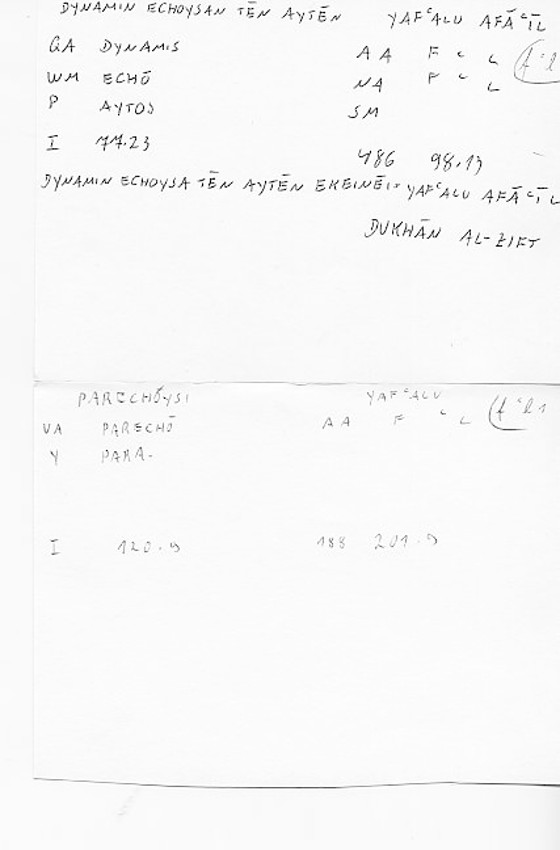 DYNAMIN ECHOYSAN TĒN AYTĒN YAFᶜALU AFĀᶜĪL
GA DYNAMIS AA F ᶜ L
WM ECHŌ NA F ᶜ L
P AYTOS SM
I 77.23 486 98.13
DYNAMIN ECHOYSA TĒN AYTĒN EKEINĒI= YAFᶜALU AFĀᶜĪL
DUKHĀN AL-ZIFT
PARECHŌYSI YAFᶜALU
VA PARECHŌ AA F ᶜ L (fᶜl1
Y PARA-
I 120.9 188 201.9